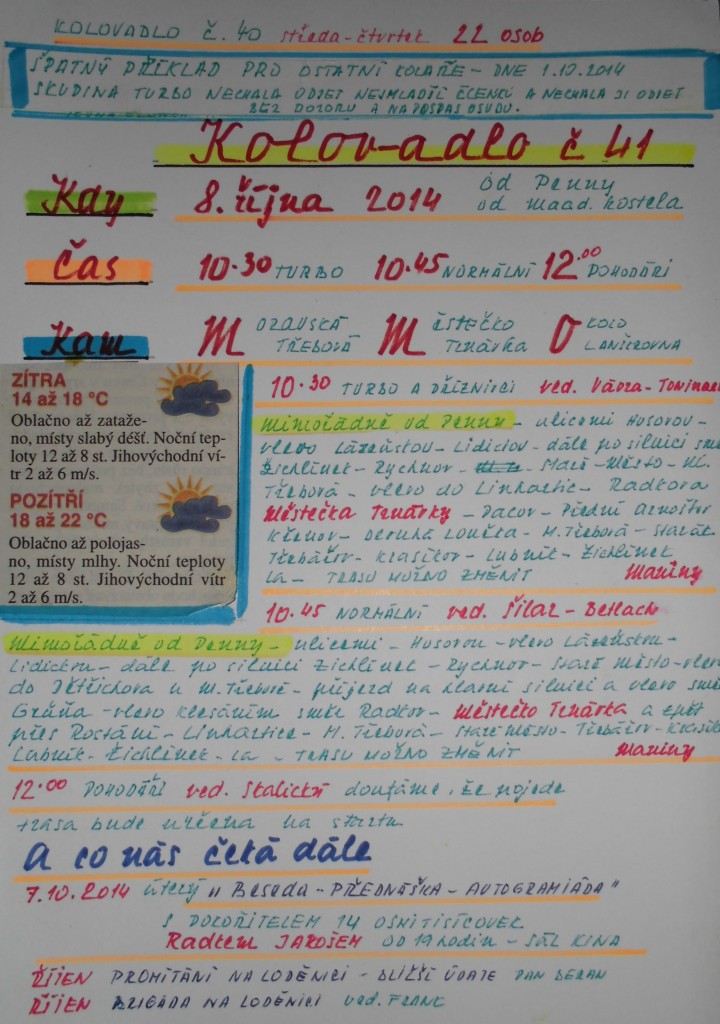 KOLOVADLO Č. 40 středa-čtvrtek 22 osob
ŠPATNÝ PŘÍKLAD PRO OSTATNÍ KOLAŘE - DNE 1.10.2014
SKUPINA TURBO NECHALA ODJET NEJMLADŠÍ ČLENKU A NECHALA JI ODJET
BEZ DOZORU A NAPOSPAS OSUDU.
Kolov-adlo č 41
Kdy 8. října 2014 od Penny
od maad. kostela
Čas 10.30 TURBO 10.45 NORMÁLNÍ 12.00 POHODÁŘI
Kam MORAVSKÁ TŘEBOVÁ MĚSTEČKO TRNÁVKA OKOLO LANŠKROUNA
ZÍTRA
14 až 18 °C
Oblačno až zataže-
no, místy slabý déšť. Noční tep-
loty 12 až 8 st. Jihovýchodní ví-
tr 2 až 6 m/s.
POZÍTŘÍ
18 až 22 °C
Oblačno až polojas-
no, místy mlhy. Noční teploty
12 až 8 st. Jihovýchodní vítr
2 až 6 m/s.
10.30 TURBO A DŘÍZNIVCI ved. Vávra-
Mimořádně od Penny - ulicemi Husovou -
vlevo Lázeňskou - Lidickou - dále po silnici
Žichlínek - Rychnov - Staré - Město - M.
Třebová - vlevo do Linhartic - Radkova
Městečka Trnávky - Pacov - Přední Arnoštov
Křenov - Dlouhá Loučka - M. Třebová - Staré
Třebařov - Krasíkov - Lubník - Žichlínek
La - TRASU MOŽNO ZMĚNIT Maniny
10.45 NORMÁLNÍ ved. Šilar - Betlach
Mimořádně od Penny - ulicemi - Husovou - vlevo Lázeňskou -
Lidickou - dále po silnici Žichlínek - Rychnov - Staré Město - vlevo
do Dětřichova u M. Třebové - příjezd na hlavní silnici a vlevo směr
Gruna - vlevo klesáním směr Radkov - Městečko Trnávka a zpět
přes Rozstání - Linhartice - M. Třebová - Staré Město - Třebařov - Krasík
Lubník - Žichlínek - La - TRASU MOŽNO ZMĚNIT Maniny
12.00 POHODÁŘI ved. Skalický doufáme, že pojede
trasa bude určena na startu
A co nás čeká dále
7.10.2014 úterý " Beseda - PŘEDNÁŠKA - AUTOGRAMIÁDA "
S POKOŘITELEM 14 OSMITISÍCOVEK
Radkem JAROŠEM OD 19 hodin - SÁL KINA
ŘÍJEN PROMÍTÁNÍ NA LODĚNICI - BLIŽŠÍ ÚDAJE PAN BERAN
ŘÍJEN BRIGÁDA NA LODĚNICI ved. FRANC